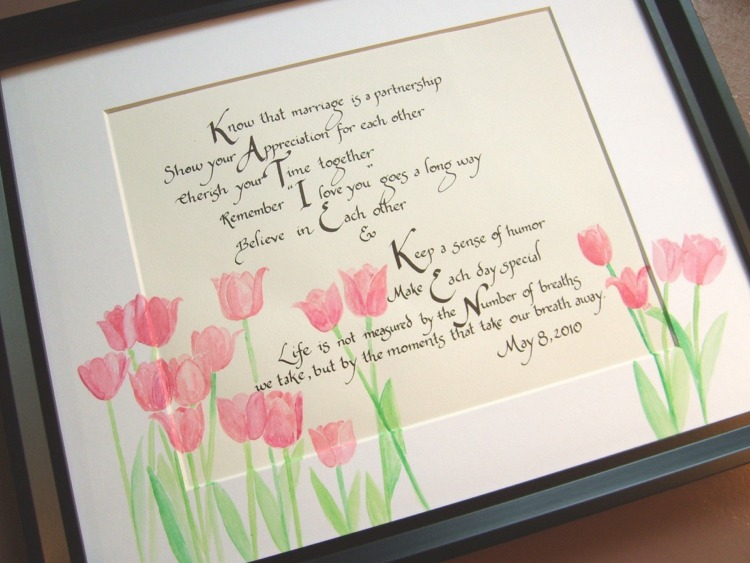 Know that marriage is a partnership
Show your Appreciation for each other
Cherish your Time together
Remember "I love you" goes a long way
Believe in Each other
&
Keep a sense of humor
Make Each day special
Life is not measured by the Number of breaths
we take, but by the moments that take our breath away.
May 8, 2010